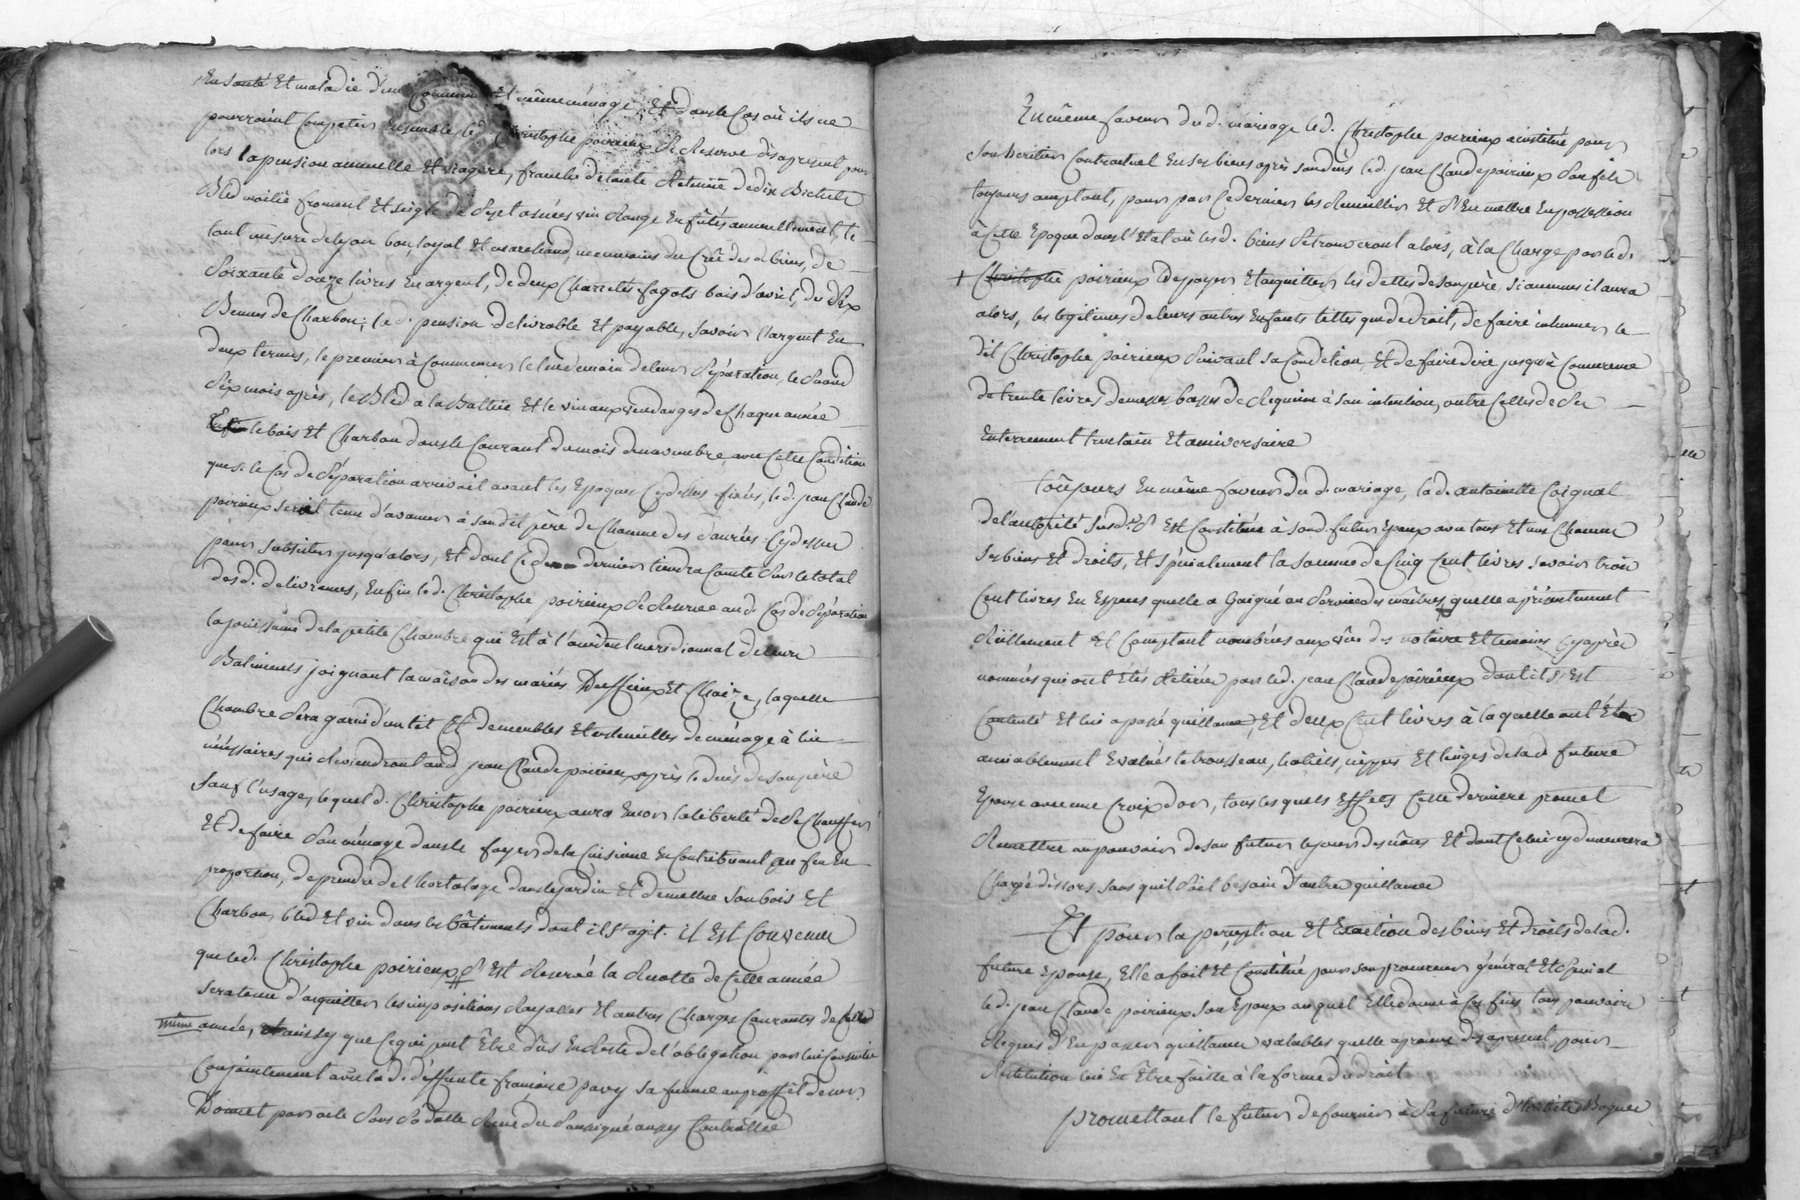 En santé Et maladie d'un commun Et même ménage, Et dans le Cas où ils ne
pourroient Compatir Ensemble, led. Christophe poirieux Se Reserve dès apresent pour
lors la pension annuelle Et viagere, franche de toute Retenue de dix Bichets
Bled moitié froment Et seigle de Sept asnées vin Rouge En fûtés annuellement le
tout mesure de lyon bon, loyal Et marchand, neanmoins du Crû des d. biens, de
Soixante douze livres En argent, de deux Charretés fagots bois d'avril, de dix
Bennes de Charbon; lad. pension delivrable Et payable, Savoir l'argent En
deux termes, le premier à Commencer le lendemain de leur Séparation, le Second
Six mois après, le Bled a la Batture Et le vin aux vendanges de Chaque année
le bois Et Charbon dans le Courant du mois de novembre, avec Cette Condition
que si le Cas de Séparation arrivoit avant les Epoques Cydessus fixées, led. jean Claude
poirieux seroit tenu d'avancer à sondit père de Chacune des d'anrées Cydessus
pour subsister jusqu'alors, Et dont Ce dernier tiendra Comte Sur le total
desd. delivrances, Enfin led. Christophe poirieux Se Reserve aud. Cas de Séparation
la jouissance de la petite Chambre qui Est à l'occident meridionnal de leurs
Batiments joignant la maison des mariés Deffrieux Et Chaize, laquelle
Chambre Sera garnie d'un lit Et de meubles Et ustencilles de ménage à lui
nécéssaires qui Reviendront aud. jean Claude poirieux après le décès de son père
sauf l'usage, lequel d. Christophe poirieux aura Encor la liberté de Se Chauffer
Et de faire Son ménage dans le foyer de la Cuisinne En Contribuant au feu En
proportion, de prendre de l'hortolage dans le jardin Et de mettre Son bois Et
Charbon, bled Et vin dans les bâtiments dont il S'agit. il Est Convenu
que led. Christophe poirieux S'Est Reservé la Recolte de Cette année
sera tenu d'acquitter les impositions Royalles Et autres Charges Courantes de lad.
même année, ainsy que Ce qui peut Être dûs En Reste de l'obligation par lui Consentie
Conjointement avec lad. deffunte françoise pavy sa femme au proffit de
Donnet par acte Sous Sa datte Reçue du Soussigné aussy Controllée
En même faveur dud. mariage led. Christophe poirieux a institué pour
son heritier Contractuel En ses biens après son decès led. jean Claude poirieux Son fils
toujours acceptant, pour par Ce dernier les Recueillir Et S'En mettre En possession
à Cette Epoque dans l'Etat où lesd. biens Se trouveront alors, à la Charge par led.
+ Christophe poirieux de payer Et acquitter les dettes de son père si aucunes il aura
alors, les légitimes de leurs autres Enfants telles que de droit, de faire inhumer le
dit Christophe poirieux Suivant sa Condition, Et de faire dire jusqu'à Concurrence
de trente livres de messes basses de Requiem à Son intention, outre Celles de Ses
Enterrement trentain Et anniversaire
Toûjours En même faveur dud. mariage, lad. antoinette Coignat
de l'autorité Susd. S'Est Constituée à sond. futur Epoux avec tous Et un Chacun
ses biens Et droits, Et spécialement la somme de Cinq Cent livres savoir trois
Cent livres En Especes quelle a Gaigné au Service des maîtres quelle a présentement
Réellement Et Comptant nombrées aux vûe des notaire Et temoins Cy après
nommés qui ont Etés Retirées par led. jean Claude poirieux dont il S'Est
Contenté Et lui a passé quittance, Et deux Cent livres à laquelle ont Eté
amiablement Evalués le trousseau, habits, nippes Et linges de lad. future
Epouse avec une Croix d'or, tous lesquels Effets Cette derniere promet
Remettre au pouvoir de Son futur le jour des nôces Et dont Celui cy demeurera
Chargé dès lors sans quil Soit besoin d'autre quittance
Et pour la perception Et Exaction des biens Et droits de lad.
future Epouse, Elle a fait Et Constitué pour son procureur général Et Special
led. jean Claude poirieux Son Epoux auquel Elle donne à Ces fins tous pouvoirs
Requis d'En passer quittances valables quelle approuve dès apresent, pour
Restitution lui En Être faitte à la forme du droit
promettant le futur de fournir à Sa future d'habits Bagues